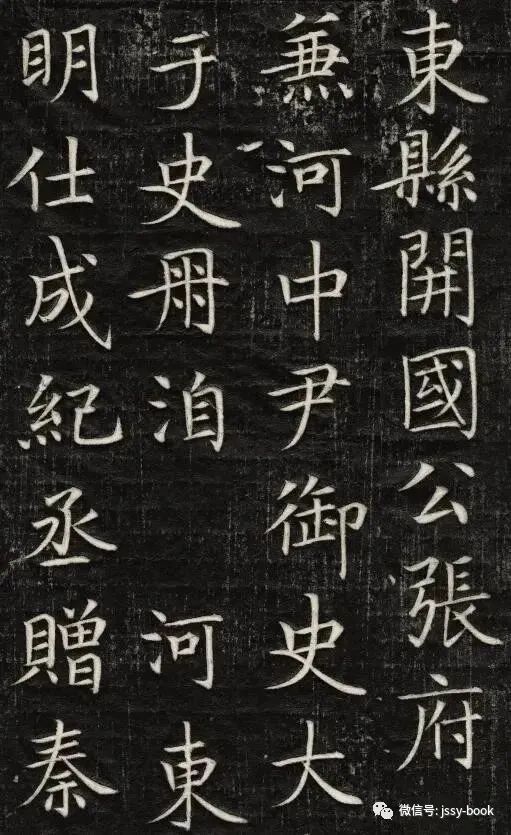 東縣開國公張府
兼河中尹御史大
于史冊洎 河東
明仕成紀丞贈秦
微信号: jssy-book